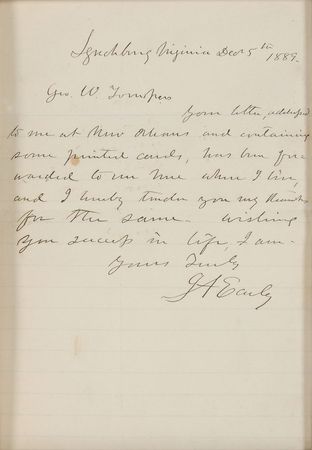 Lynchburg Virginia Decr 5th 1889.
Geo. W.
Your letter, addressed
to me at New Orleans and containing
some printed cards, has been for-
warded to me here where I live,
and I hereby tender you my thanks
for the same. wishing
you success in life, I am
Yours Truly
J A Early